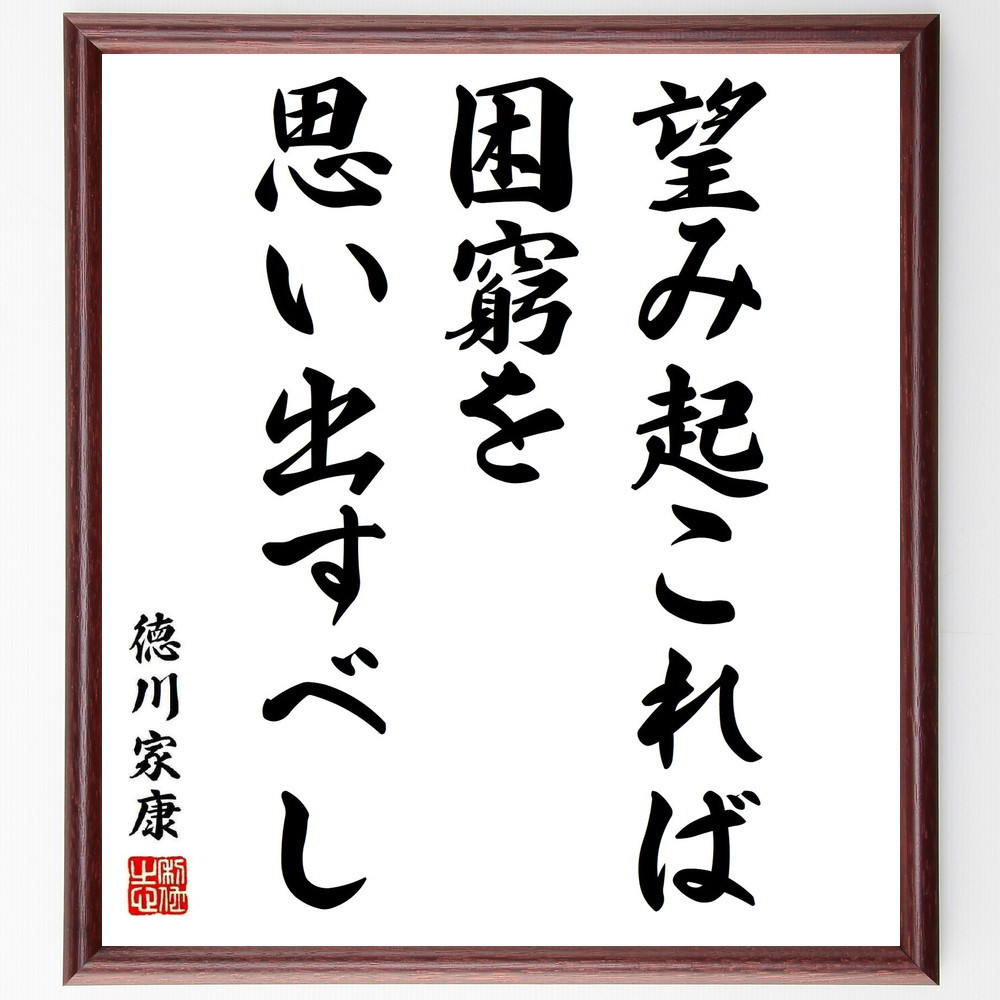 望み起これば
困窮を
思い出すべし
徳川家康